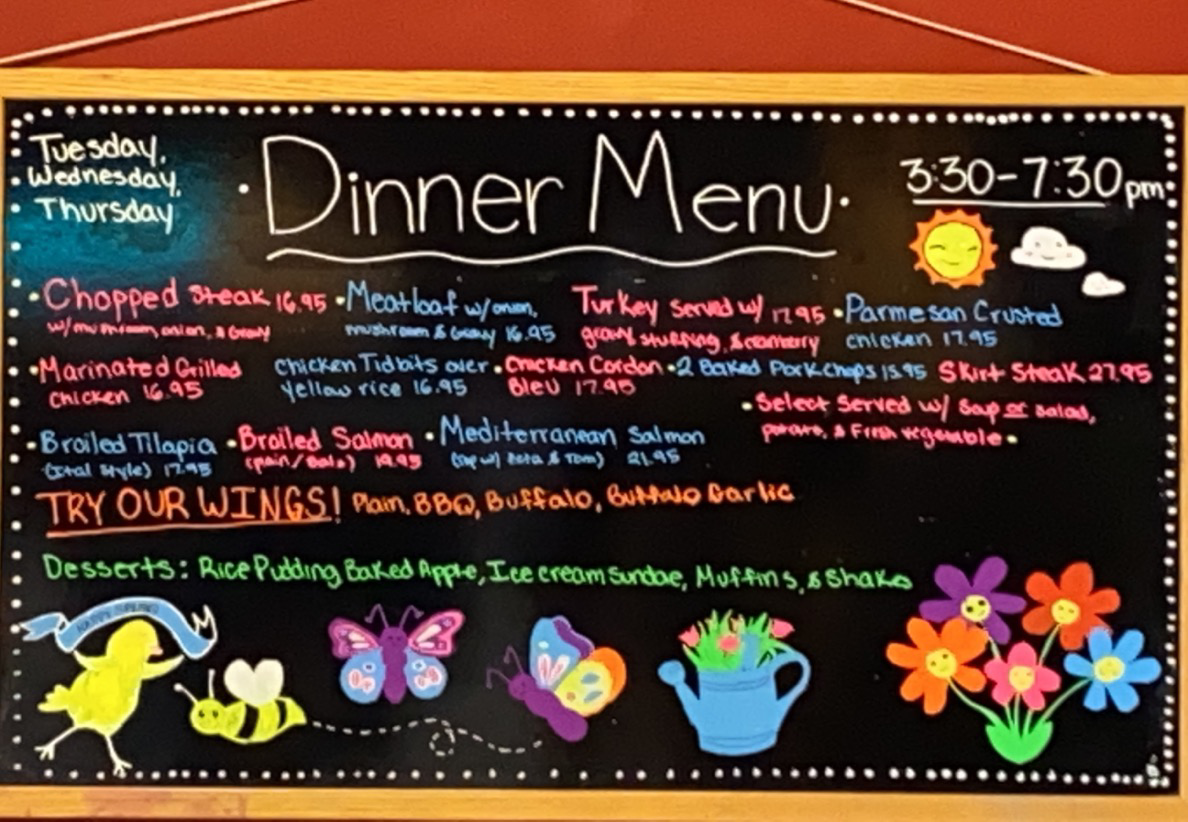 Tuesday,
Wednesday,
Thursday
·Dinner Menu·
3:30-7:30 pm
·Chopped Steak 16.95
w/mushroom, onion, & Gravy
·Meatloaf w/onion,
mushroom & Gravy 16.95
Turkey Served w/ 17.95
gravy, stuffing, & cranberry
·Parmesan Crusted
chicken 17.95
·Marinated Grilled
chicken 16.95
chicken Tidbits over
yellow rice 16.95
·Chicken Cordon
Bleu 17.95
·2 Baked Pork chops 15.95
Skirt Steak 27.95
·Select Served w/ Soup or Salad,
potato, & Fresh vegetable·
·Broiled Tilapia
(Ital Style) 17.95
·Broiled Salmon
19.95
·Mediterranean Salmon
(top w/ Feta & Tom) 21.95
TRY OUR WINGS! Plain, BBQ, Buffalo, Buffalo Garlic
Desserts: Rice Pudding, Baked Apple, Ice cream Sundae, Muffins, & Shake